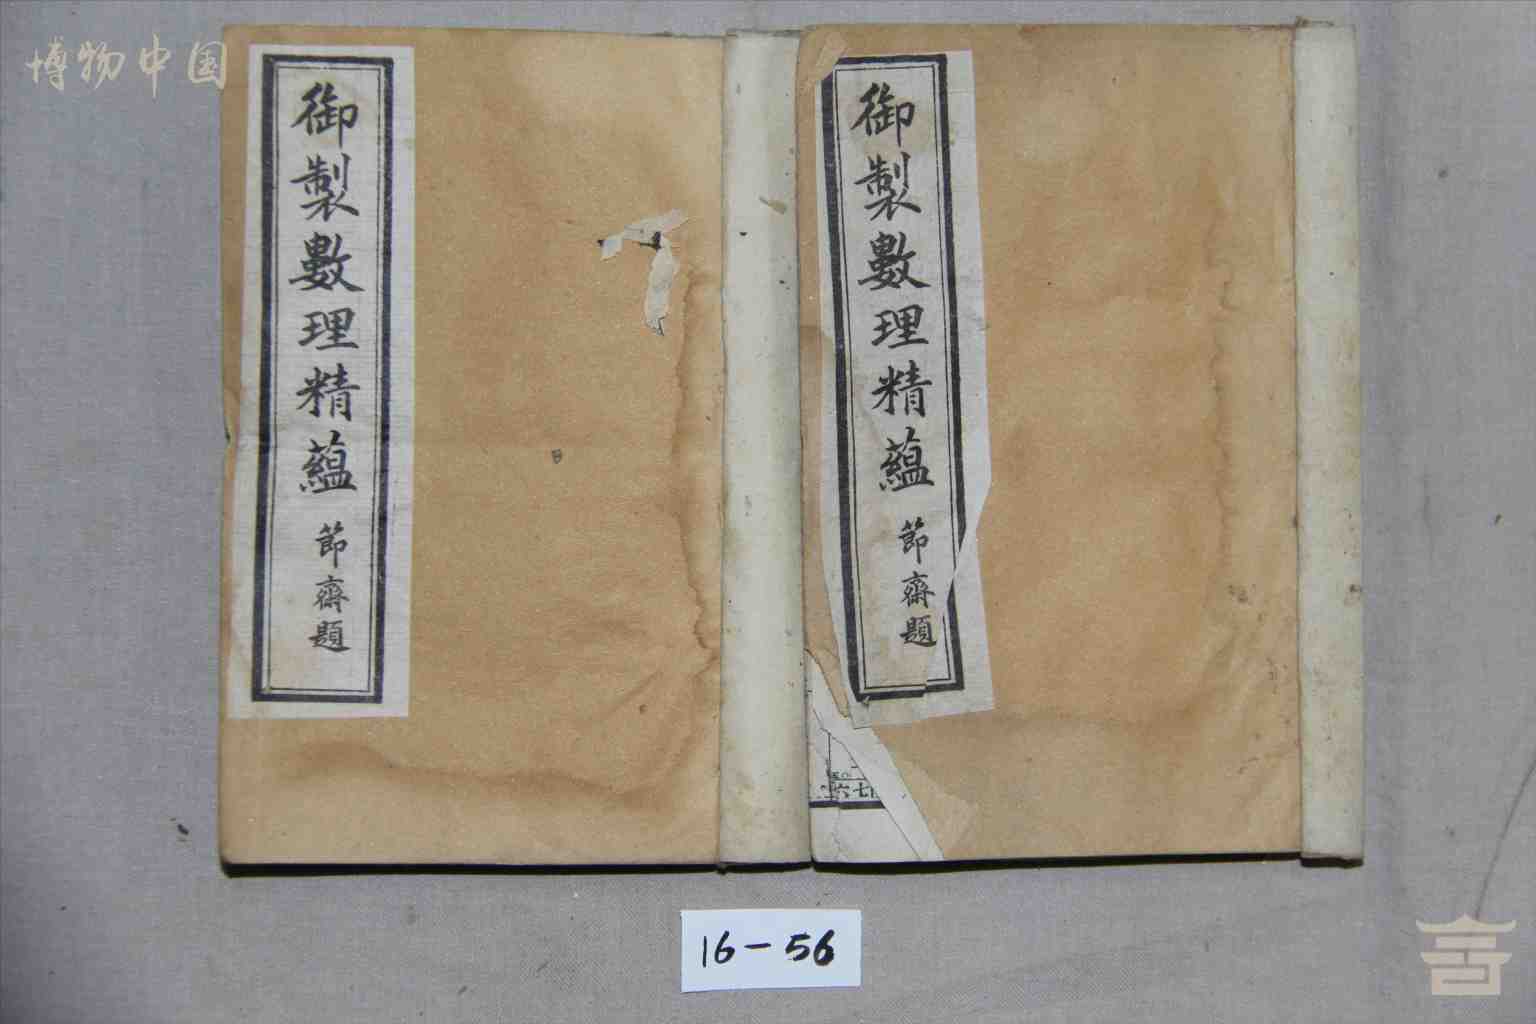 博物中国
御製數理精蘊
節齋題
御製數理精蘊
節齋題
16-56